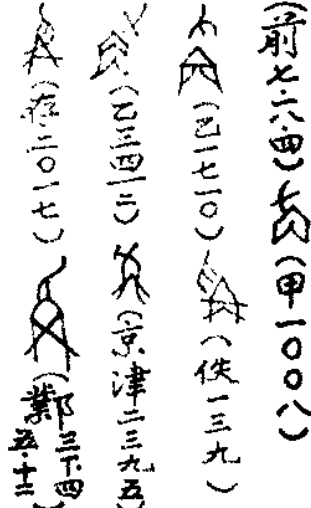 (前七·二八·四) (甲一〇〇八)
(乙一七一〇) (佚一三九)
(乙三四一二) (京津二三九五)
(存·二〇一七) (鄴三下·四五·十二)